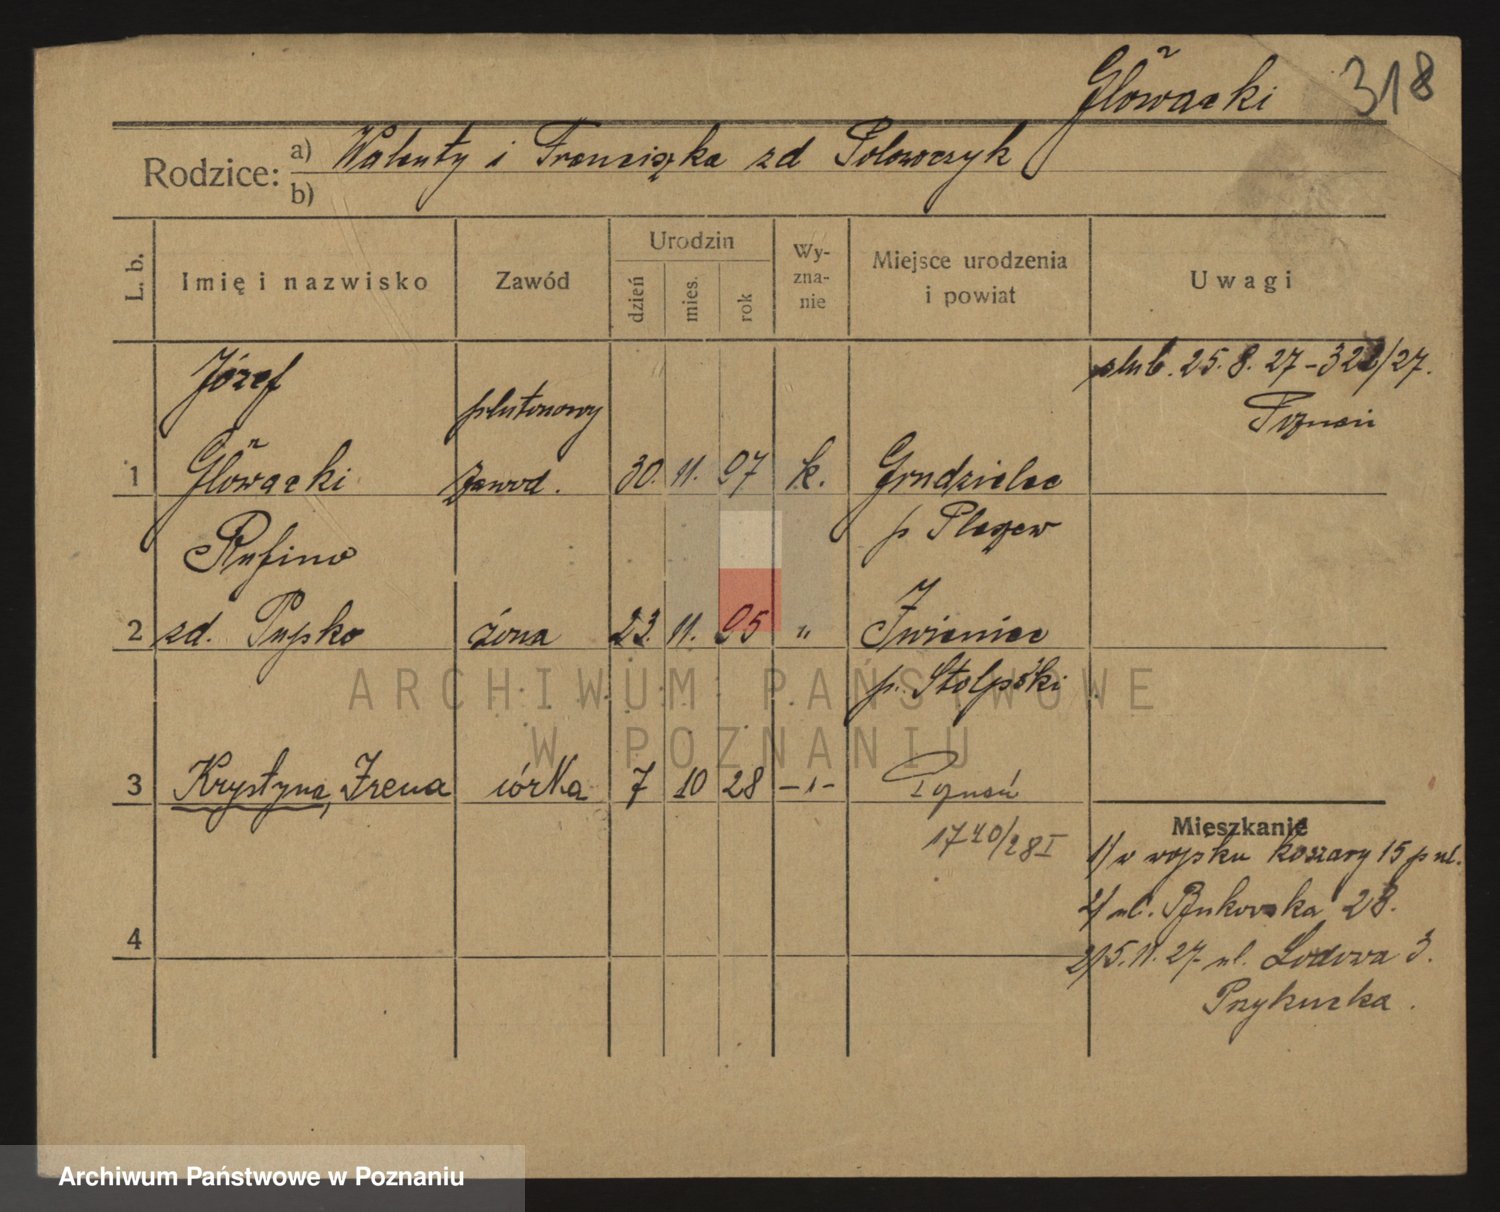 Główacki 318
Rodzice: a) Walenty i Franciszka zd Polowczyk
b)
L. b. Imię i nazwisko Zawód Urodzin dzień mies. rok Wy-zna-nie Miejsce urodzenia i powiat Uwagi
Józef plutonowy ślub. 25.8.27 - 322/27.
Poznań
1 Główacki zawod. 30. 11. 97 k. Grudzielec
p Pleszew
Rufina
2 zd. Pupko żona 23. 11. 95 " Iwieniec
p. Stolpski
ARCHIWUM PAŃSTWOWE
W POZNANIU
3 Krystyna, Irena córka 7 10 28 -"- Poznań
1740/28 I
Mieszkanie
1/ w wojsku koszary 15 p uł.
2/ ul. Bukowska 28.
4
2/ 5.11.27 ul. Lodowa 3.
Przykucka.
Archiwum Państwowe w Poznaniu